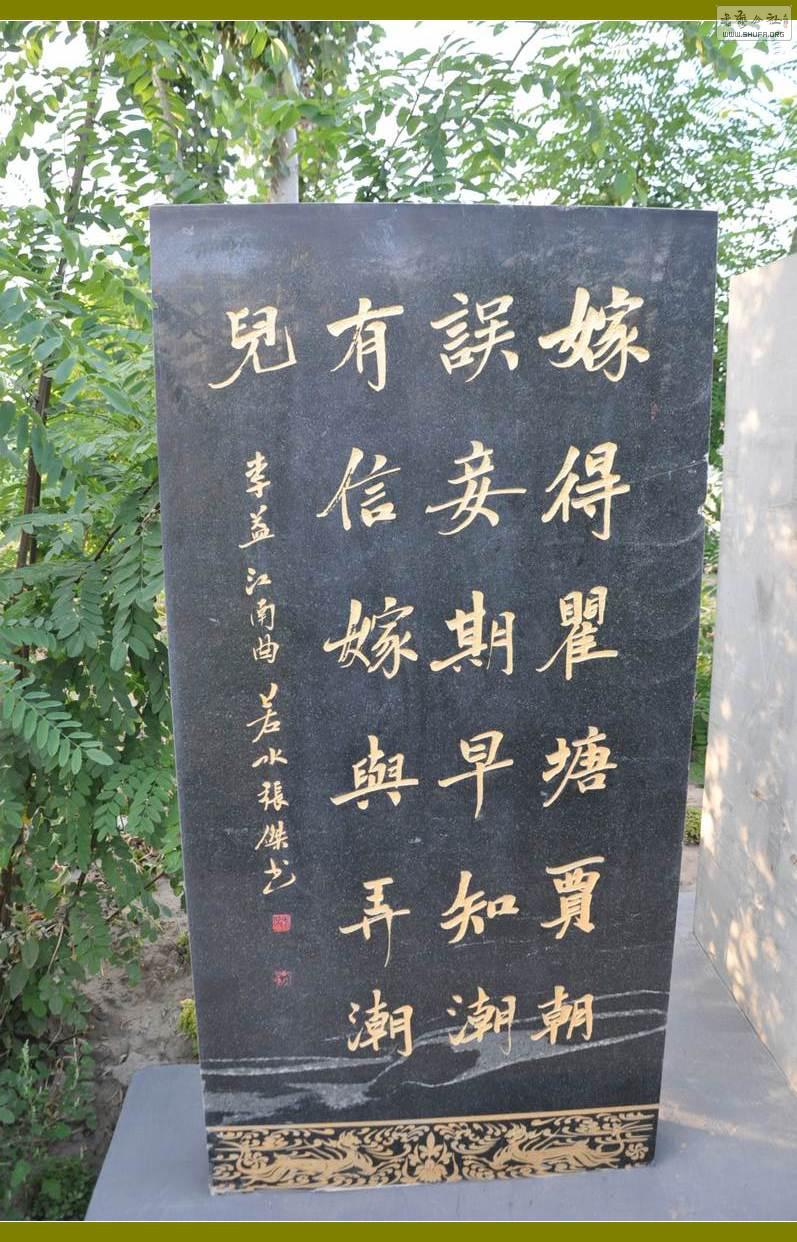 嫁得瞿塘賈朝
誤妾期早知潮
有信嫁與弄潮
兒
李益江南曲若水張傑书
WWW.SHUFA.ORG